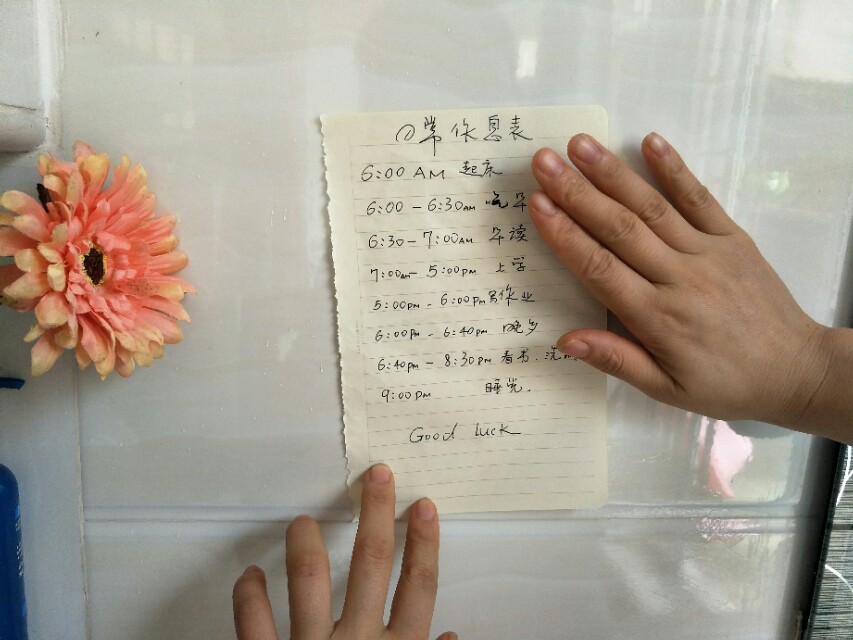 日常作息表
6:00 AM 起床
6:00 - 6:30AM 吃早
6:30 - 7:00AM 早读
7:00am - 5:00pm 上学
5:00pm - 6:00pm 写作业
6:00pm - 6:40pm 晚歺
6:40pm - 8:30pm 看书.洗
9:00pm 睡觉.
Good luck